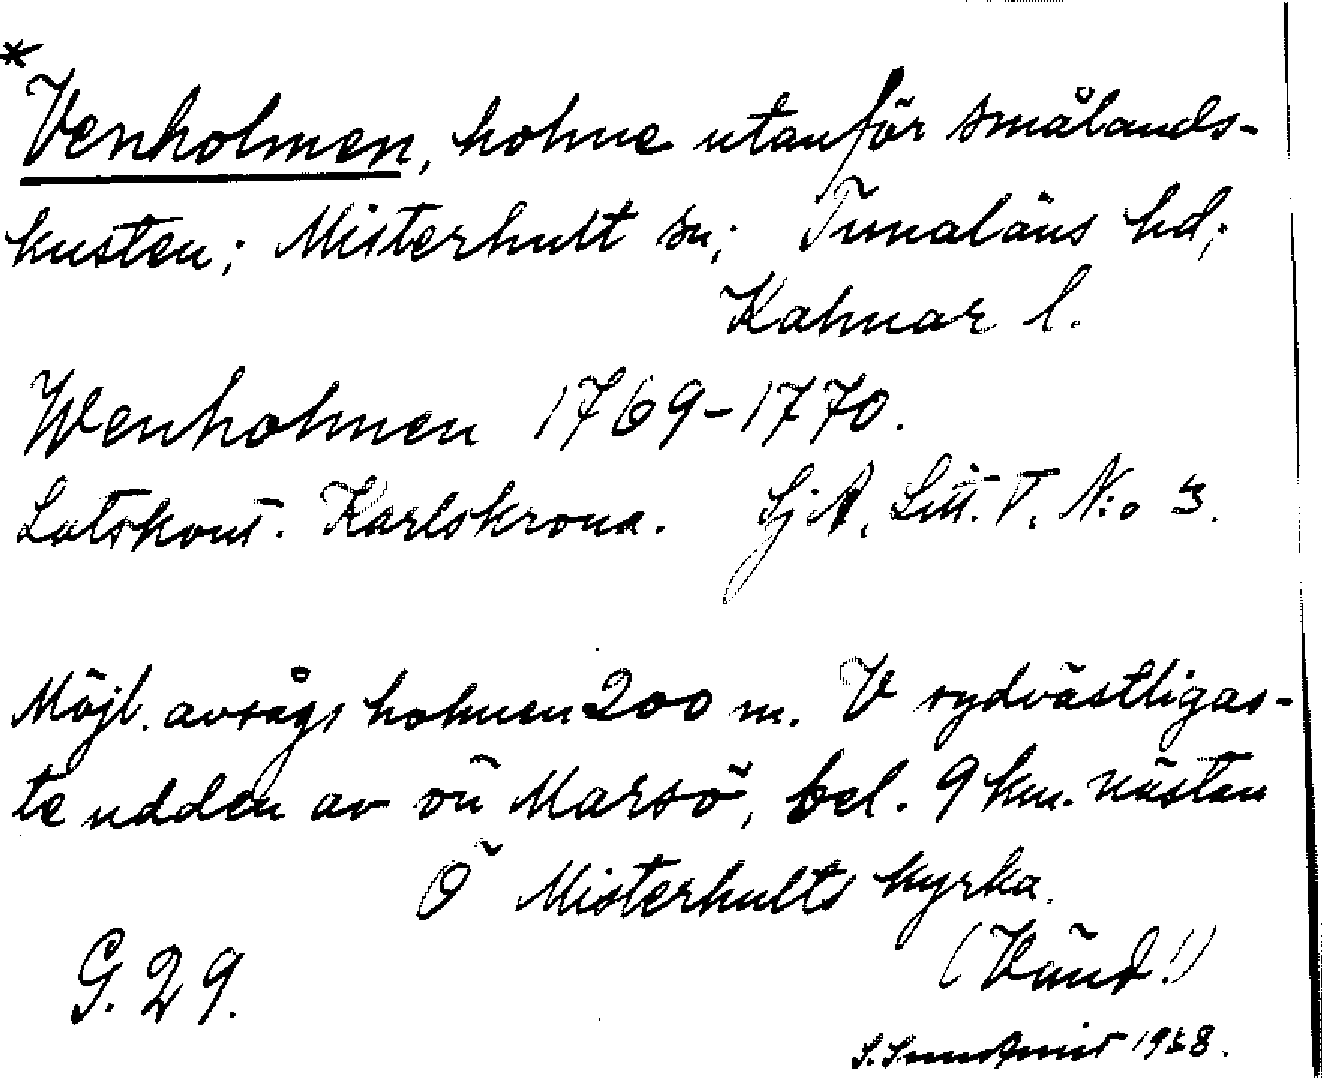 *
Venholmen, holme utanför smålands-
kusten; Misterhult sn; Tunaläns hd;
Kalmar l.
Wenholmen 1769-1770.
Lotskont. Karlskrona. SjA. Litt. T. N:o 3.
Möjl. avsågs holmen 200 m. V sydvästligas-
te udden av ön Marsö, bel. 9 km. nästan
Ö Misterhults kyrka.
(Vänd!)
G. 29.
S. 19